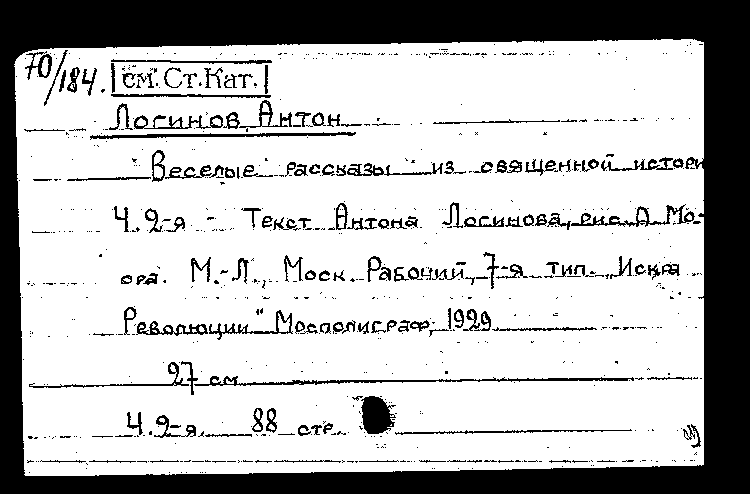 70/184. см. Ст. Кат.
Логинов, Антон
"Веселые рассказы" из священной истори
Ч. 2-я - Текст Антона Логинова, рис. Д. Мо-
ора. М.-Л., Моск. Рабочий, 7-я тип. "Искра
Революции" Мосполиграф, 1929
27 см
Ч. 2-я. 88 стр.